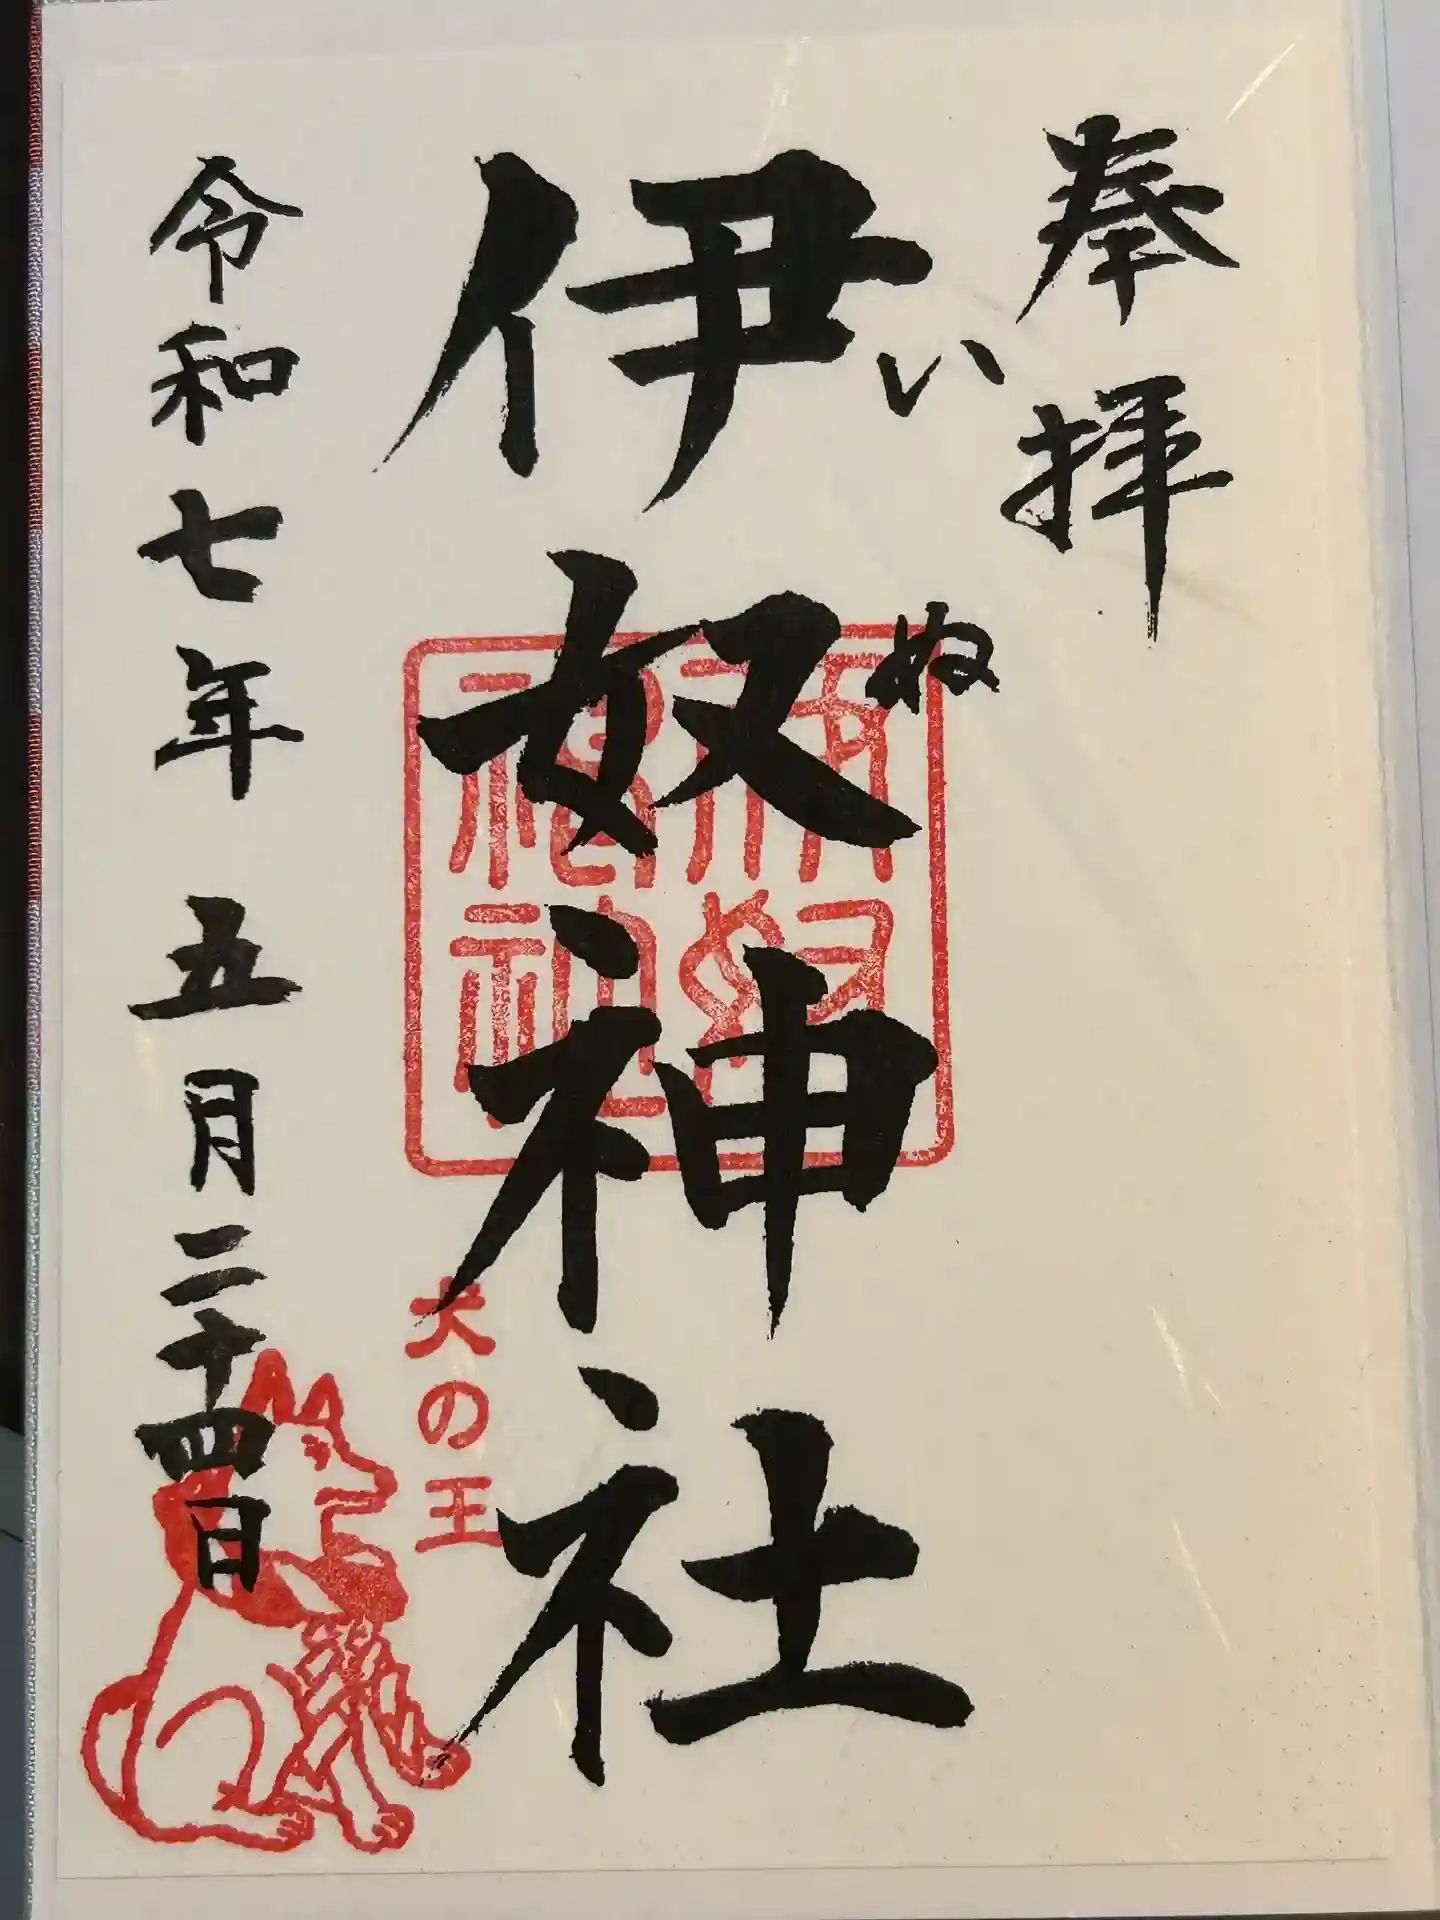 奉拝
いぬ
伊奴神社
犬の王
令和七年五月二十四日